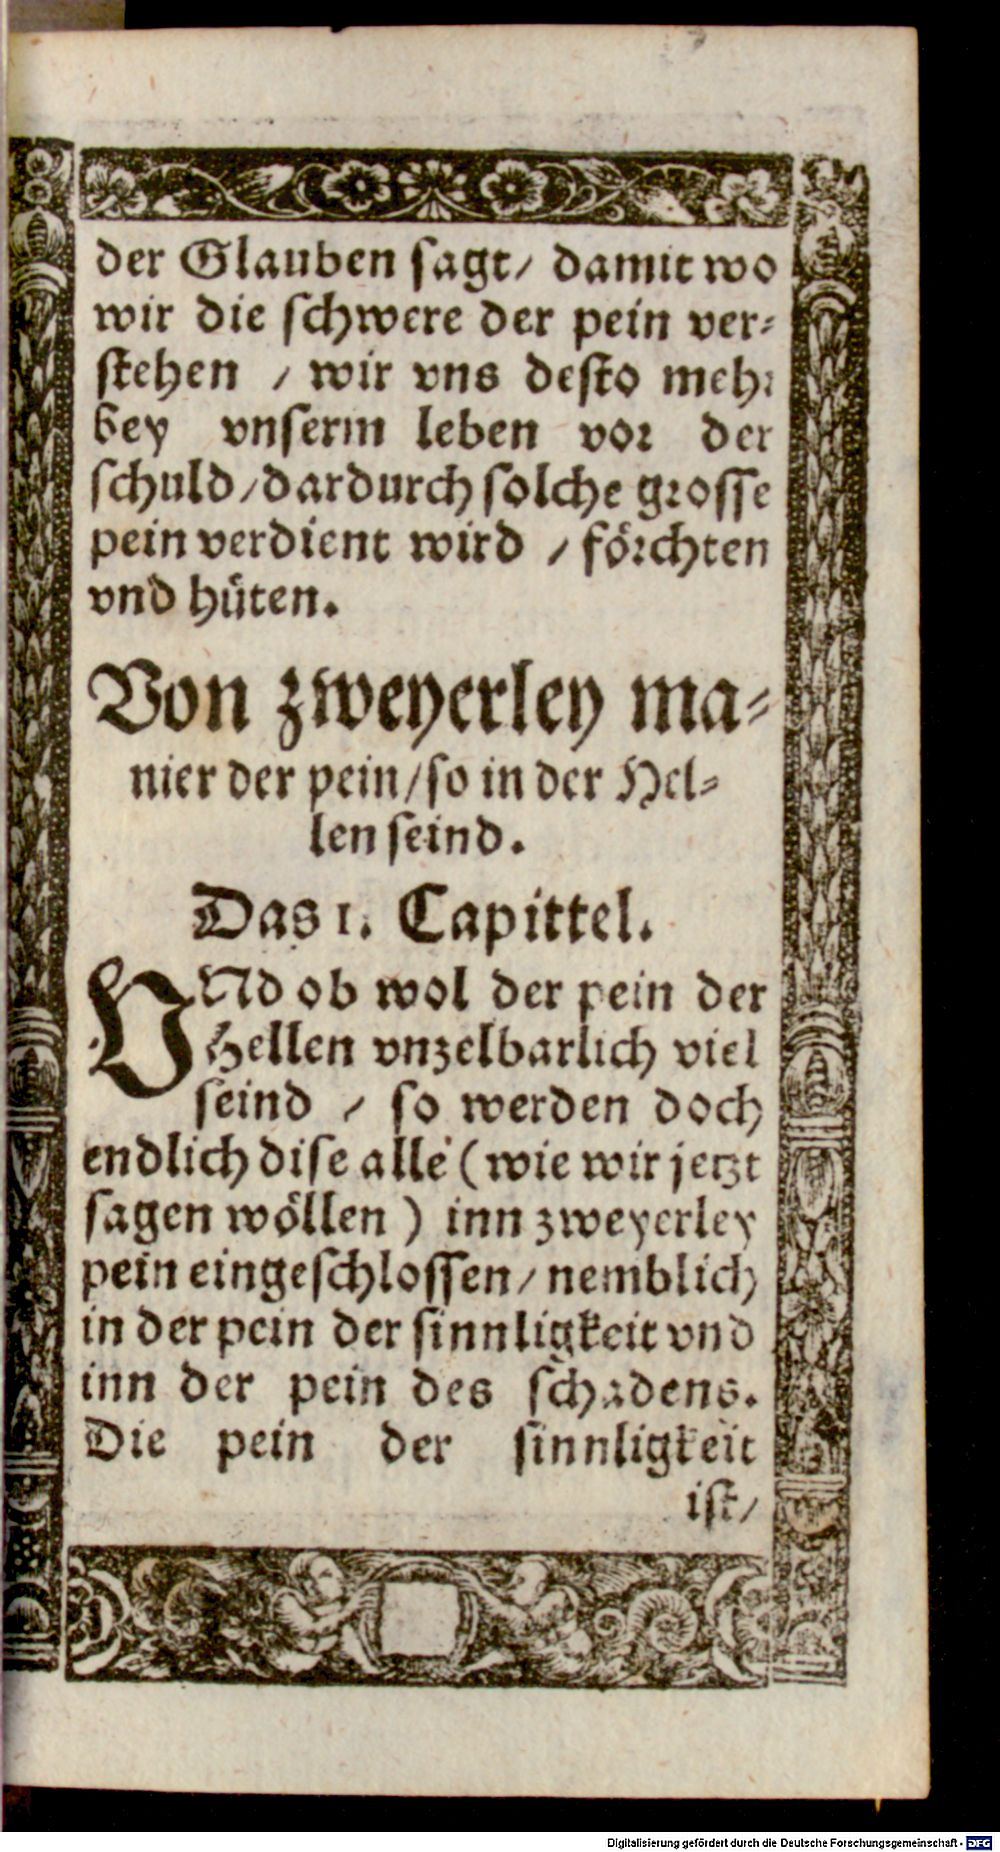 der Glauben sagt/ damit wo
wir die schwere der pein ver-
stehen / wir vns desto mehr
bey vnserm leben vor der
schuld/dardurch solche grosse
pein verdient wird / förchten
vnd hüten.
Von zweyerley ma-
nier der pein/so in der Hel-
len seind.
Das 1. Capittel.
VNd ob wol der pein der
Hellen vnzelbarlich viel
seind / so werden doch
endlich dise alle (wie wir jetzt
sagen wöllen) inn zweyerley
pein eingeschlossen/ nemblich
in der pein der sinnligkeit vnd
inn der pein des schadens.
Die pein der sinnligkeit
ist/
Digitalisierung gefördert durch die Deutsche Forschungsgemeinschaft - DFG